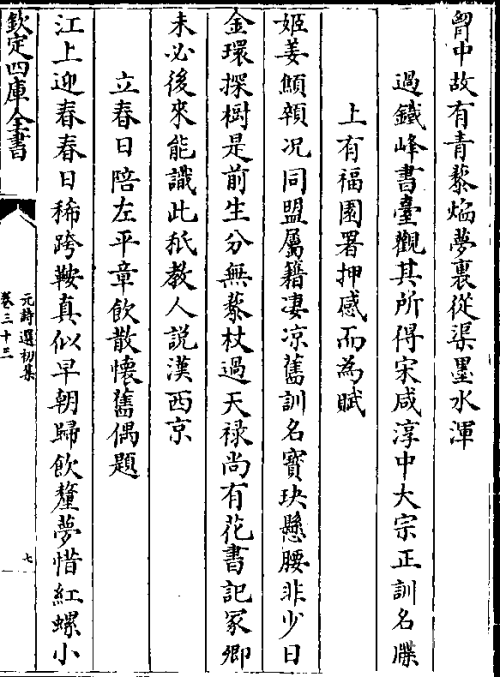 胷中故有青藜焰夢裏從渠墨水渾
過鐵峰書臺觀其所得宋咸淳中大宗正訓名牒
上有福園署押感而為賦
姬姜顦顇况同盟屬籍凄凉舊訓名寶玦懸腰非少日
金環探樹是前生分無藜杖過天禄尚有花書記冢卿
未必後來能識此秖教人説漢西京
立春日陪左平章飲散懷舊偶題
江上迎春春日稀跨鞍真似早朝歸飲釐夢惜紅螺小
欽定四庫全書
元詩選初集
卷三十三
七